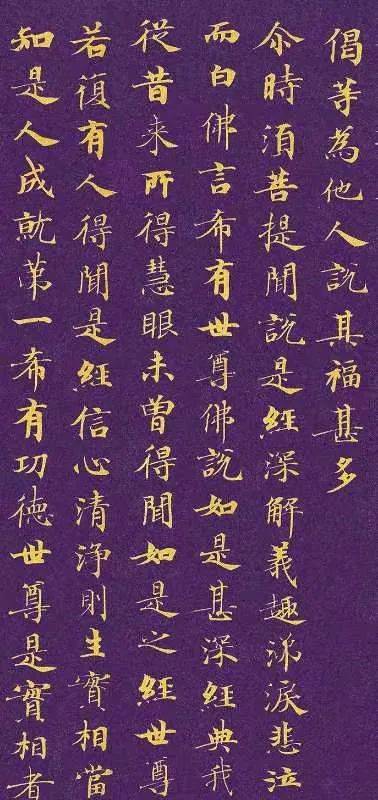 偈等為他人說其福甚多
尒時須菩提聞說是經深解義趣涕淚悲泣
而白佛言希有世尊佛說如是甚深經典我
從昔来所得慧眼未曾得聞如是之經世尊
若復有人得聞是經信心清淨則生實相當
知是人成就苐一希有功徳世尊是實相者